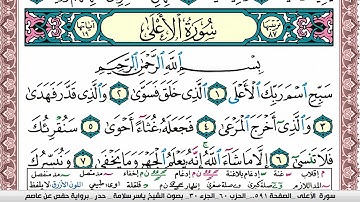 سُورَةُ الأَعْلَى
بِسْمِ اللَّهِ الرَّحْمَٰنِ الرَّحِيمِ
سَبِّحِ اسْمَ رَبِّكَ الْأَعْلَى ١ الَّذِي خَلَقَ فَسَوَّىٰ ٢ وَالَّذِي قَدَّرَ فَهَدَىٰ
٣ وَالَّذِي أَخْرَجَ الْمَرْعَىٰ ٤ فَجَعَلَهُ غُثَاءً أَحْوَىٰ ٥ سَنُقْرِئُكَ
فَلَا تَنسَىٰ ٦ إِلَّا مَا شَاءَ اللَّهُ إِنَّهُ يَعْلَمُ الْجَهْرَ وَمَا يَخْفَىٰ ٧ وَنُيَسِّرُكَ
سورة الأعلى . الصفحة ٥٩١ . الحزب ٦٠ . الجزء ٣٠ . بصوت الشيخ ياسر سلامة . حدر . برواية حفص عن عاصم